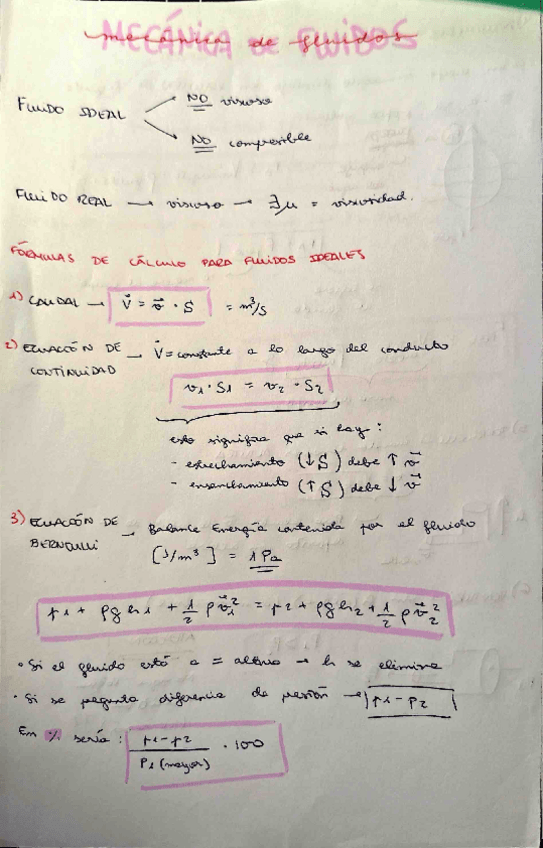 MECÁNICA DE FLUIDOS
mecánica de fluidos
FLUIDO IDEAL
NO viscoso
NO compresible
FLUIDO REAL → viscoso → ∃μ = viscosidad.
FÓRMULAS DE CÁLCULO PARA FLUIDOS IDEALES
1) CAUDAL → V̇ = v⃗ · S = m³/s
2) ECUACIÓN DE → V̇ = constante a lo largo del conducto
CONTINUIDAD
v₁ · S₁ = v₂ · S₂
esto significa que si hay :
- estrechamiento (↓ S) debe ↑ v⃗
- ensanchamiento (↑ S) debe ↓ v⃗
3) ECUACIÓN DE → Balance Energía contenida por el fluido
BERNOULLI
[J/m³] = 1 Pa
p₁ + ρgh₁ + 1/2 ρv⃗₁² = p₂ + ρgh₂ + 1/2 ρv⃗₂²
· Si el fluido está a = altura → h se elimina
· Si se pregunta diferencia de presión → |p₁ - p₂|
En % sería : p₁ - p₂ / P₁ (mayor) · 100